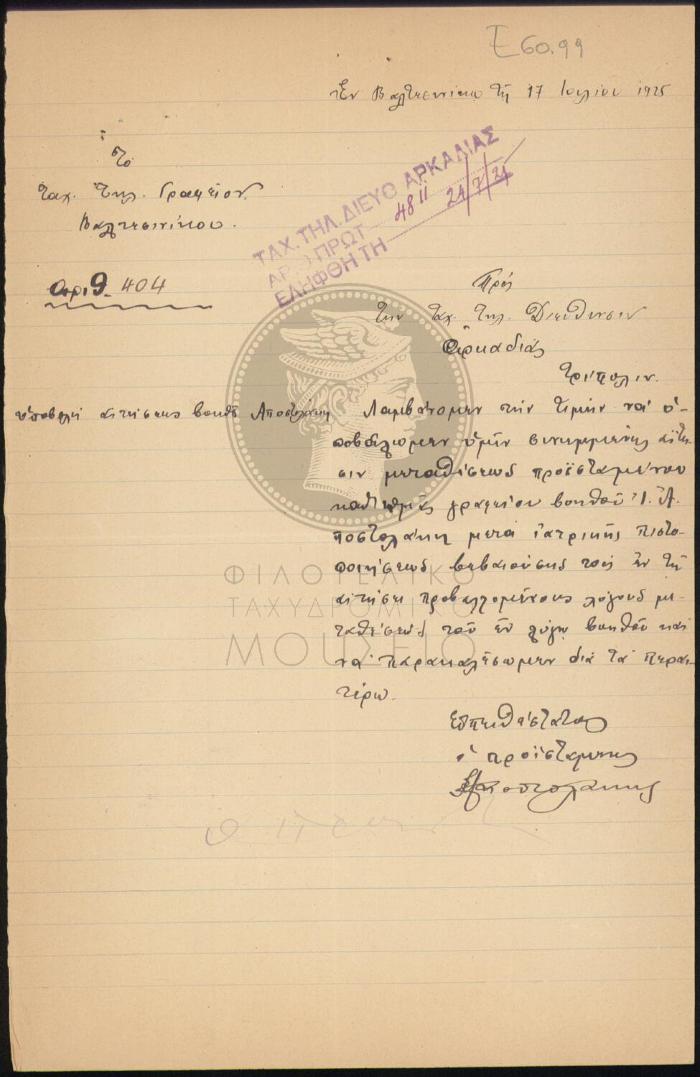 E60.99
Ἐν Βαλτεσινίκῳ τῇ 17 Ἰουλίου 1925
Τὸ
Ταχ. Τηλ. Γραφεῖον
Βαλτεσινίκου.
ΤΑΧ. ΤΗΛ. ΔΙΕΥΘ ΑΡΚΑΔΙΑΣ
ΑΡ. ΠΡΩΤ 4811
ΕΛΗΦΘΗ ΤΗ 21/7/21
Ἀριθ. 404
Πρὸς
Τὴν Ταχ. Τηλ. Διεύθυνσιν
Ἀρκαδίας
Τρίπολιν.
ὑποβολὴ αἰτήσεως βοηθ Ἀποστολάκη
Λαμβάνομεν τὴν τιμὴν νὰ ὑ-
ποβάλωμεν ὑμῖν συνημμένως αἴτη-
σιν μεταθέσεως προϊσταμένου
καθ' ἡμᾶς γραφείου βοηθοῦ Ἰ. Ἀ-
ποστολάκη μετὰ ἰατρικῆς πιστο-
ποιήσεως βεβαιούσης τοὺς ἐν τῇ
αἰτήσει προβαλλομένους λόγους με-
ταθέσεως τοῦ ἐν λόγῳ βοηθοῦ καὶ
νὰ παρακαλέσωμεν διὰ τὰ περαι-
τέρω.
Εὐπειθέστατος
ὁ προϊστάμενος
Ἀποστολάκης
ΦΙΛΟΤΕΛΙΚΟ
ΤΑΧΥΔΡΟΜΙΚΟ
ΜΟΥΣΕΙΟ